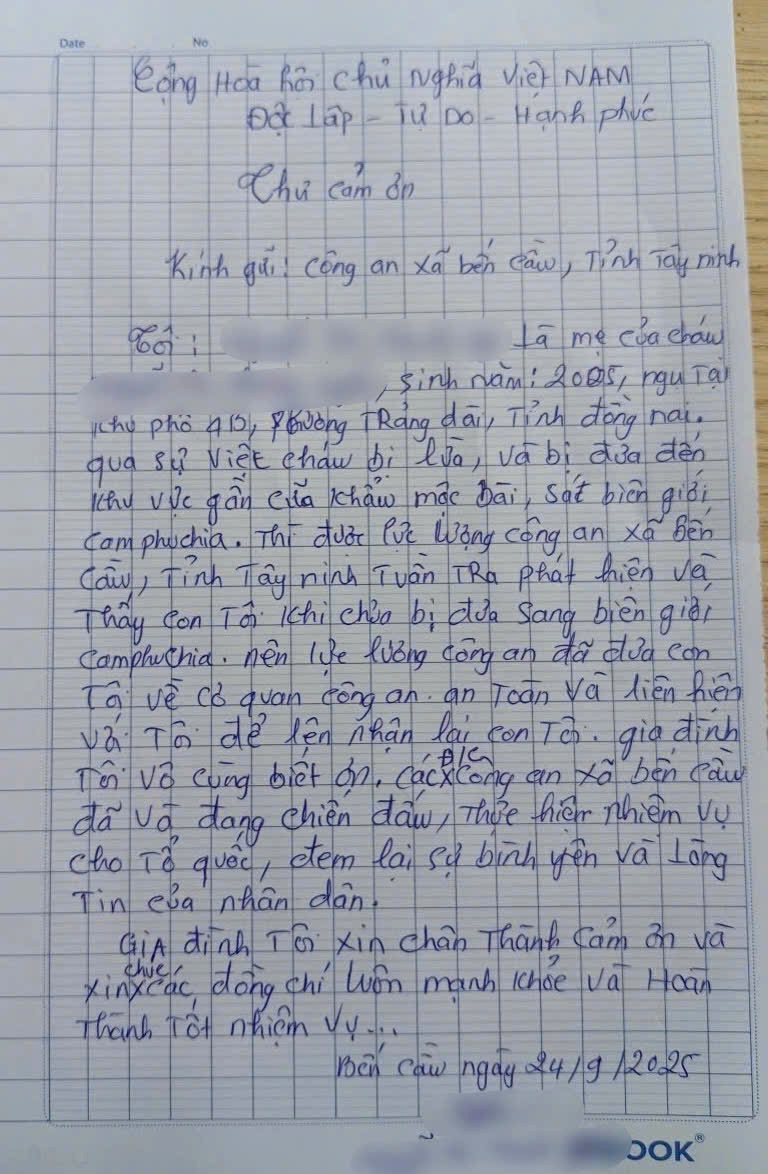 Date No
Cộng Hoà hội chủ nghĩa việt NAM
Độc lập - Tự Do - Hạnh phúc
Thư cảm ơn
Kính gửi: công an xã bến cầu, Tỉnh Tây ninh
Tôi: là mẹ của cháu
, sinh năm: 2005, ngụ Tại
khu phố 4D, phường TRảng dài, Tỉnh đồng nai.
qua sự việt cháu bị lừa, và bị đưa đến
khu vực gần cửa khẩu mộc bài, sát biên giới
campuchia. Thì được lực lượng công an xã Bến
cầu, Tỉnh Tây ninh Tuần TRa phát hiện và
Thấy con Tôi khi chưa bị đưa sang biên giới
camphuchia. nên lực lượng công an đã đưa con
Tôi về cơ quan công an. an Toàn và liên hiện
với Tôi để lên nhận lại con Tôi. gia đình
Tôi vô cùng biết ơn, các Đ/c công an xã bến cầu
đã và đang chiến đấu, Thực hiện nhiệm vụ
cho Tổ quốc, đem lại sự bình yên và lòng
Tin của nhân dân.
GIA đình Tôi xin chân Thành cảm ơn và
xin chúc các đồng chí luôn mạnh khỏe và Hoàn
Thành Tốt nhiệm vụ...
Bến cầu ngày 24/9/2025
OOK®